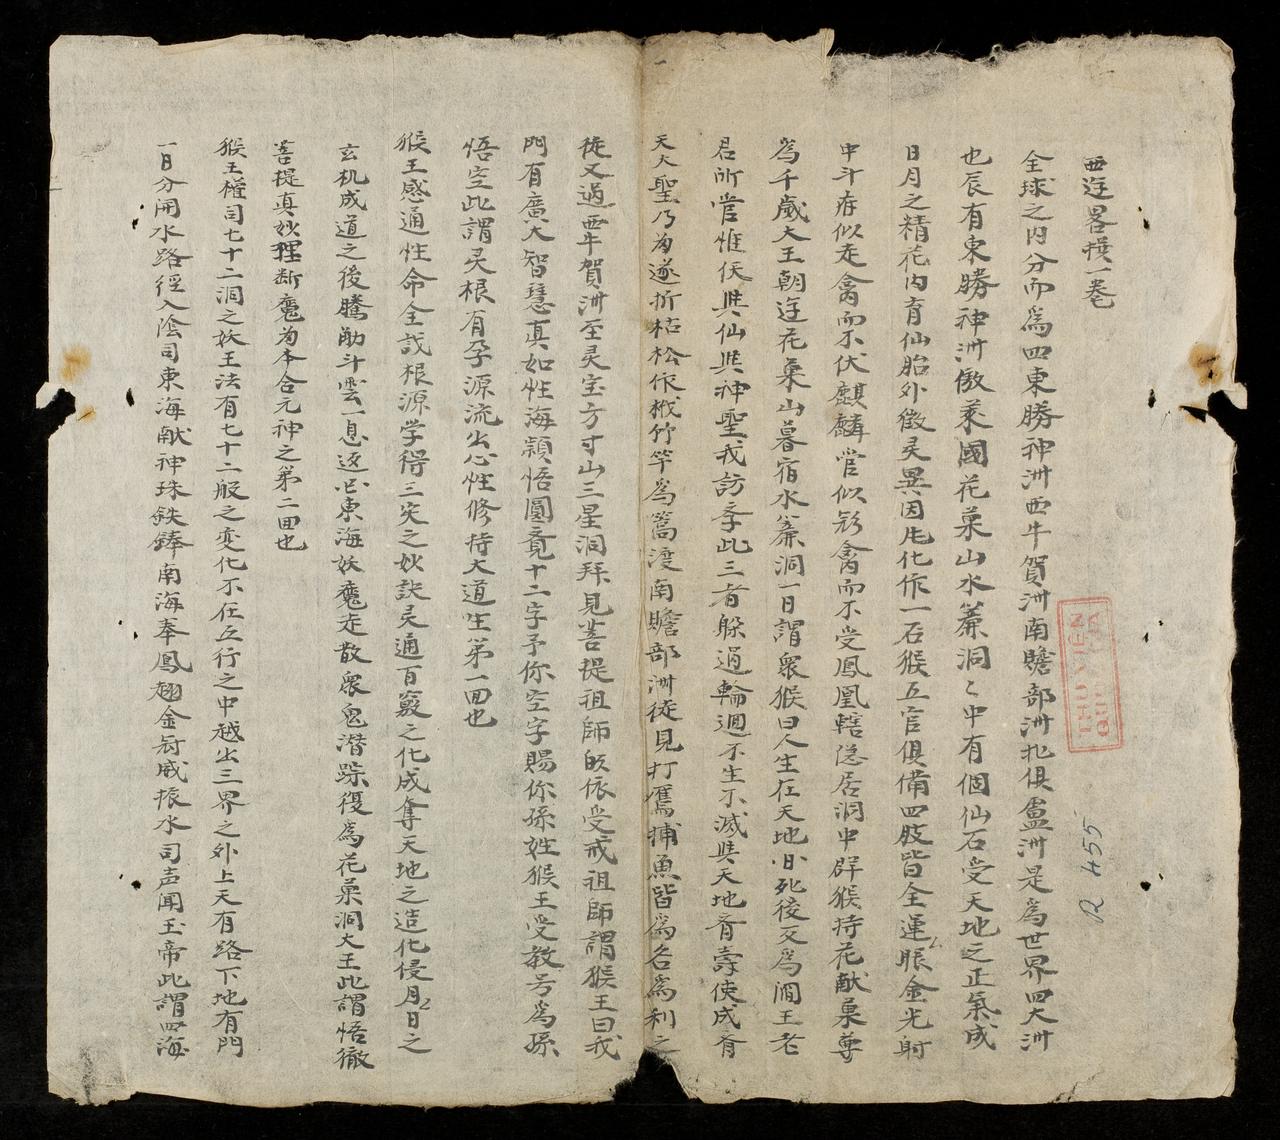 西遊畧撰一卷
全球之内分而爲四東勝神洲西牛賀洲南贍部洲北俱盧洲是爲世界四大洲
也辰有東勝神洲傲萊國花菓山水簾洞〻中有個仙石受天地之正氣成
日月之精花内育仙胎外徵灵異因此化作一石猴五官俱備四肢皆全運眼金光射
中斗府似走禽而不伏麒麟官似彩禽而不受鳳凰轄隐居洞中群猴持花献菓尊
為千歲大王朝遊花菓山暮宿水簾洞一日謂衆猴曰人生在天地間死後又為閻王老
君所管惟佛與仙與神聖我訪李此三者躲過輪迴不生不滅與天地齊壽使成齊
天大聖乃為遂折枯松作栰竹竿為篙渡南贍部洲徒見打鴈捕魚皆為名為利之
徒又過西牛賀洲至灵宝方寸山三星洞拜見菩提祖師皈依受戒祖師謂猴王曰我
門有廣大智慧真如性海穎悟圓竟十二字予你空字賜你孫姓猴王受教号為孫
悟空此謂灵根有孕源流出心性修持大道生第一囬也
猴王感通性命全哉根源学得三灾之妙訣灵通百竅之化成奪天地之造化侵月日之
玄机成道之後騰觔斗雲一息返回東海妖魔走散衆鬼潛踪復為花菓洞大王此謂悟徹
菩提真妙理断魔為本合元神之第二囬也
猴王權司七十二洞之妖王法有七十二般之变化不在五行之中越出三界之外上天有路下地有門
一日分開水路徑入陰司東海献神珠鉄鋒南海奉鳳翅金冠威振水司声聞玉帝此謂四海
R 455